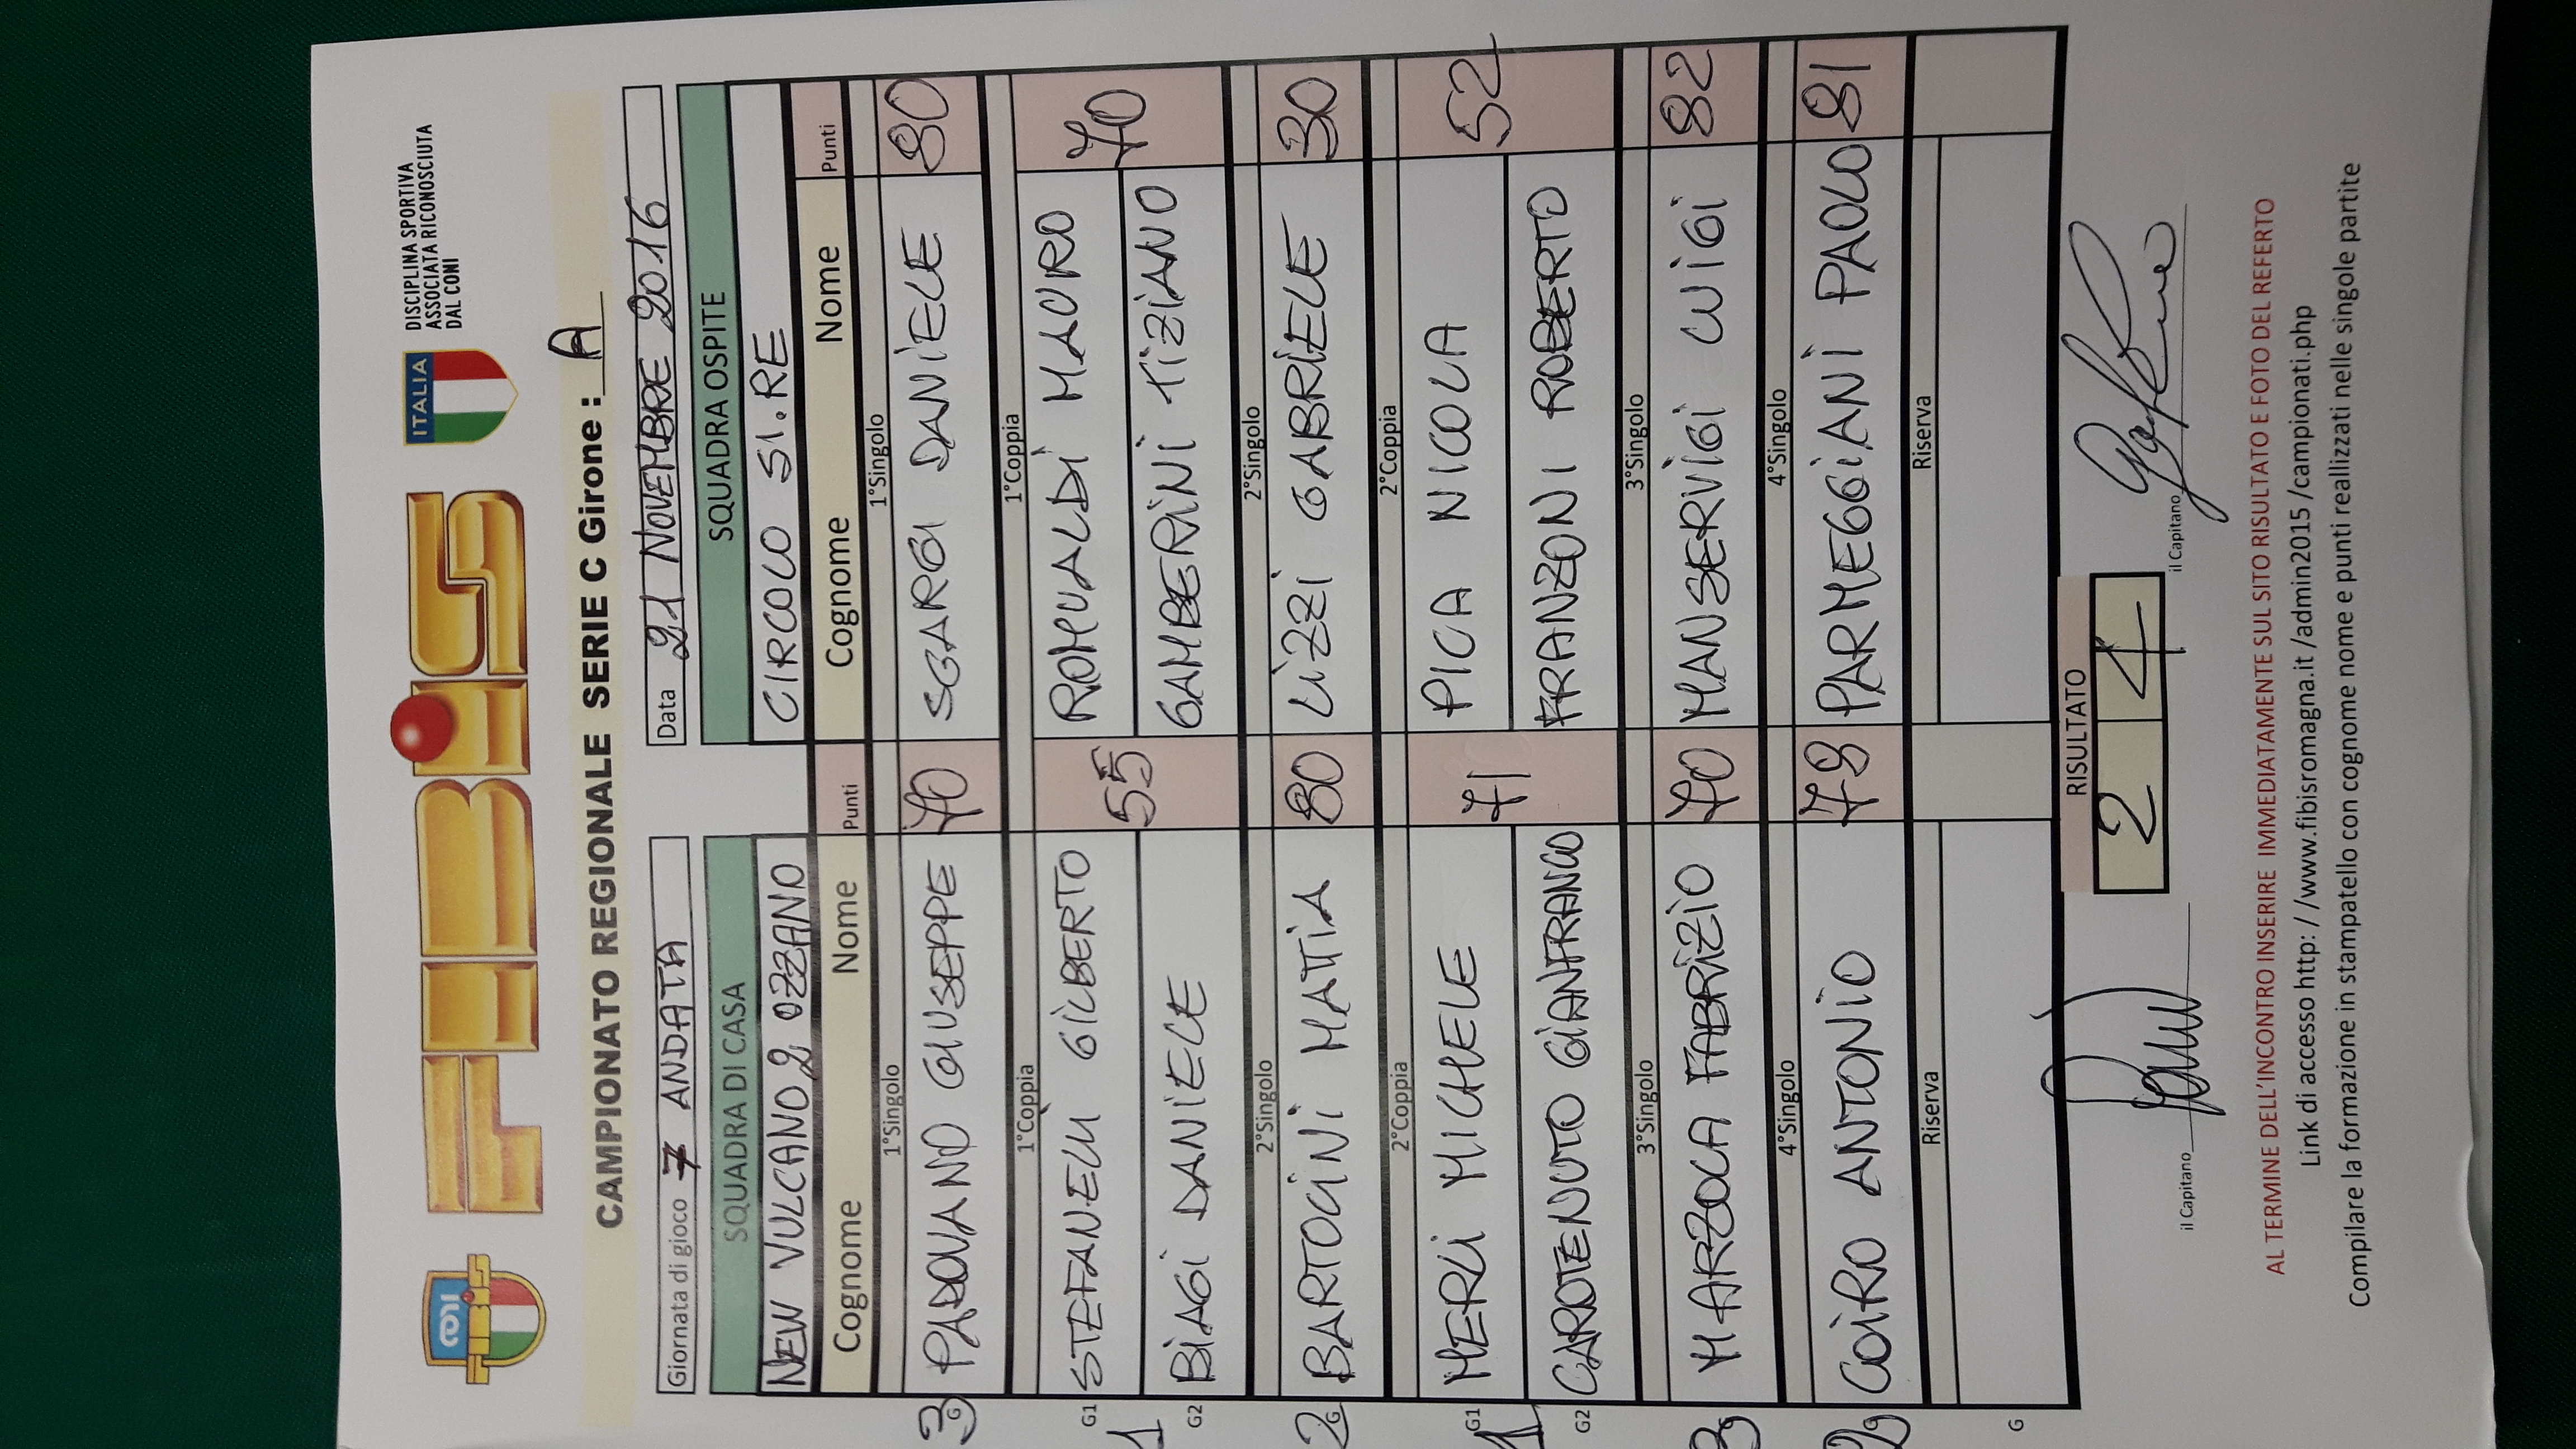 FIBiS
ITALIA
DISCIPLINA SPORTIVA
ASSOCIATA RICONOSCIUTA
DAL CONI
CAMPIONATO REGIONALE SERIE C Girone : A
Giornata di gioco 7 ANDATA
Data 21 NOVEMBRE 2016
SQUADRA DI CASA SQUADRA OSPITE
NEW VULCANO 2 OZZANO CIRCOLO SI.RE
Cognome Nome Punti Cognome Nome Punti
1°Singolo 1°Singolo
3 G PADOVANO GIUSEPPE 70 SGARGI DANIELE 80
1°Coppia 1°Coppia
G1 STEFANELLI GILBERTO ROMUALDI MAURO
1 55 70
G2 BIAGI DANIELE GAMBERINI TIZIANO
2°Singolo 2°Singolo
2 G BARTOCINI MATTIA 80 LIZZI GABRIELE 30
2°Coppia 2°Coppia
G1 MERLI MICHELE PICA NICOLA
1 71 52
G2 CAROTENUTO GIANFRANCO FRANZONI ROBERTO
3°Singolo 3°Singolo
3 MARZOLA FABRIZIO 70 MANSERVIGI LUIGI 82
4°Singolo 4°Singolo
2 COIRO ANTONIO 78 PARMEGGIANI PAOLO 81
Riserva Riserva
G
RISULTATO
2 4
il Capitano il Capitano
AL TERMINE DELL'INCONTRO INSERIRE IMMEDIATAMENTE SUL SITO RISULTATO E FOTO DEL REFERTO
Link di accesso http: / /www.fibisromagna.it /admin2015 /campionati.php
Compilare la formazione in stampatello con cognome nome e punti reallizzati nelle singole partite